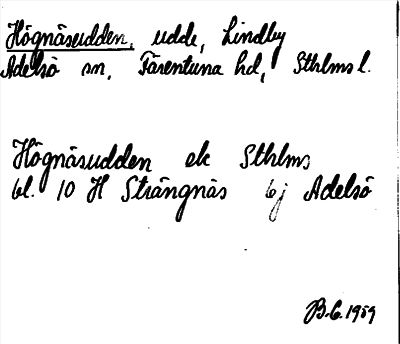 Högnäsudden, udde, Lindby
Adelsö sn, Färentuna hd, Sthlms l.
Högnäsudden ek Sthlms
bl. 10 H Strängnäs 6j Adelsö
B.G. 1959